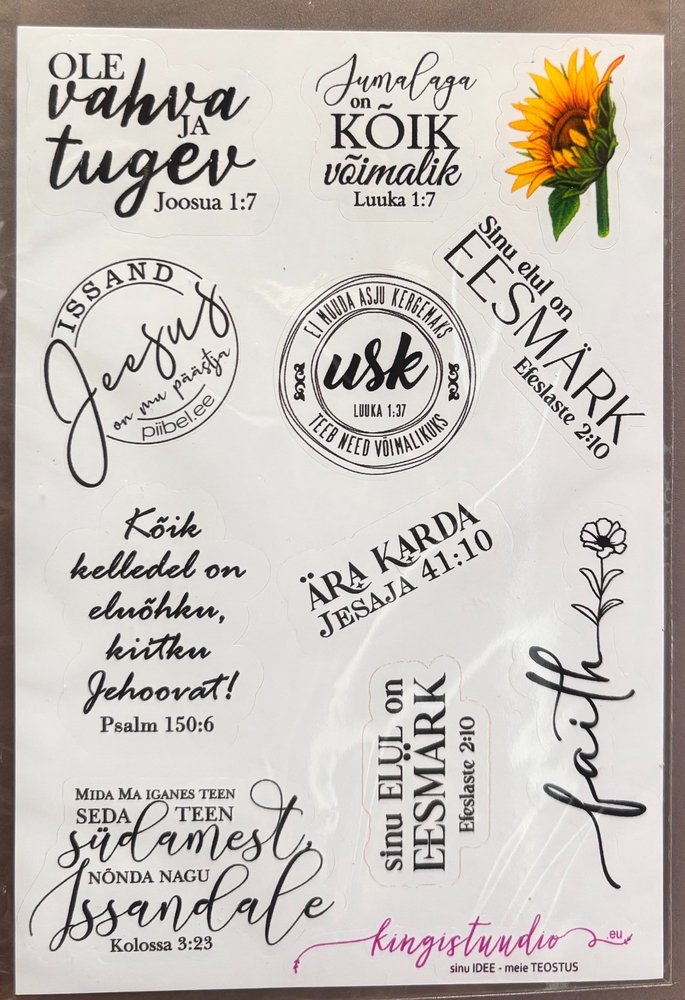 OLE
vahva
JA
tugev
Joosua 1:7
Jumalaga
on
KÕIK
võimalik
Luuka 1:7
Sinu elul on
EESMÄRK
Efeslaste 2:10
ISSAND
Jeesus
on mu päästja
piibel.ee
EI MUUDA ASJU KERGEMAKS
usk
LUUKA 1:37
TEEB NEED VÕIMALIKUKS
Kõik
kelledel on
eluõhku,
kiitku
Jehoovat!
Psalm 150:6
ÄRA KARDA
JESAJA 41:10
faith
sinu ELUL on
EESMÄRK
Efeslaste 2:10
MIDA MA IGANES TEEN
SEDA TEEN
südamest,
NÕNDA NAGU
Issandale
Kolossa 3:23
kingistuudio.eu
sinu IDEE - meie TEOSTUS